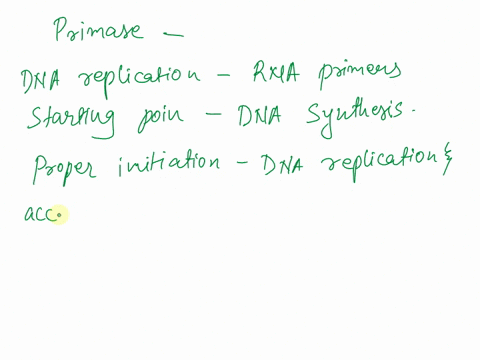 Primase –
DNA replication – RNA primers
Starting poin – DNA Synthesis.
Proper initiation – DNA replication &
acc